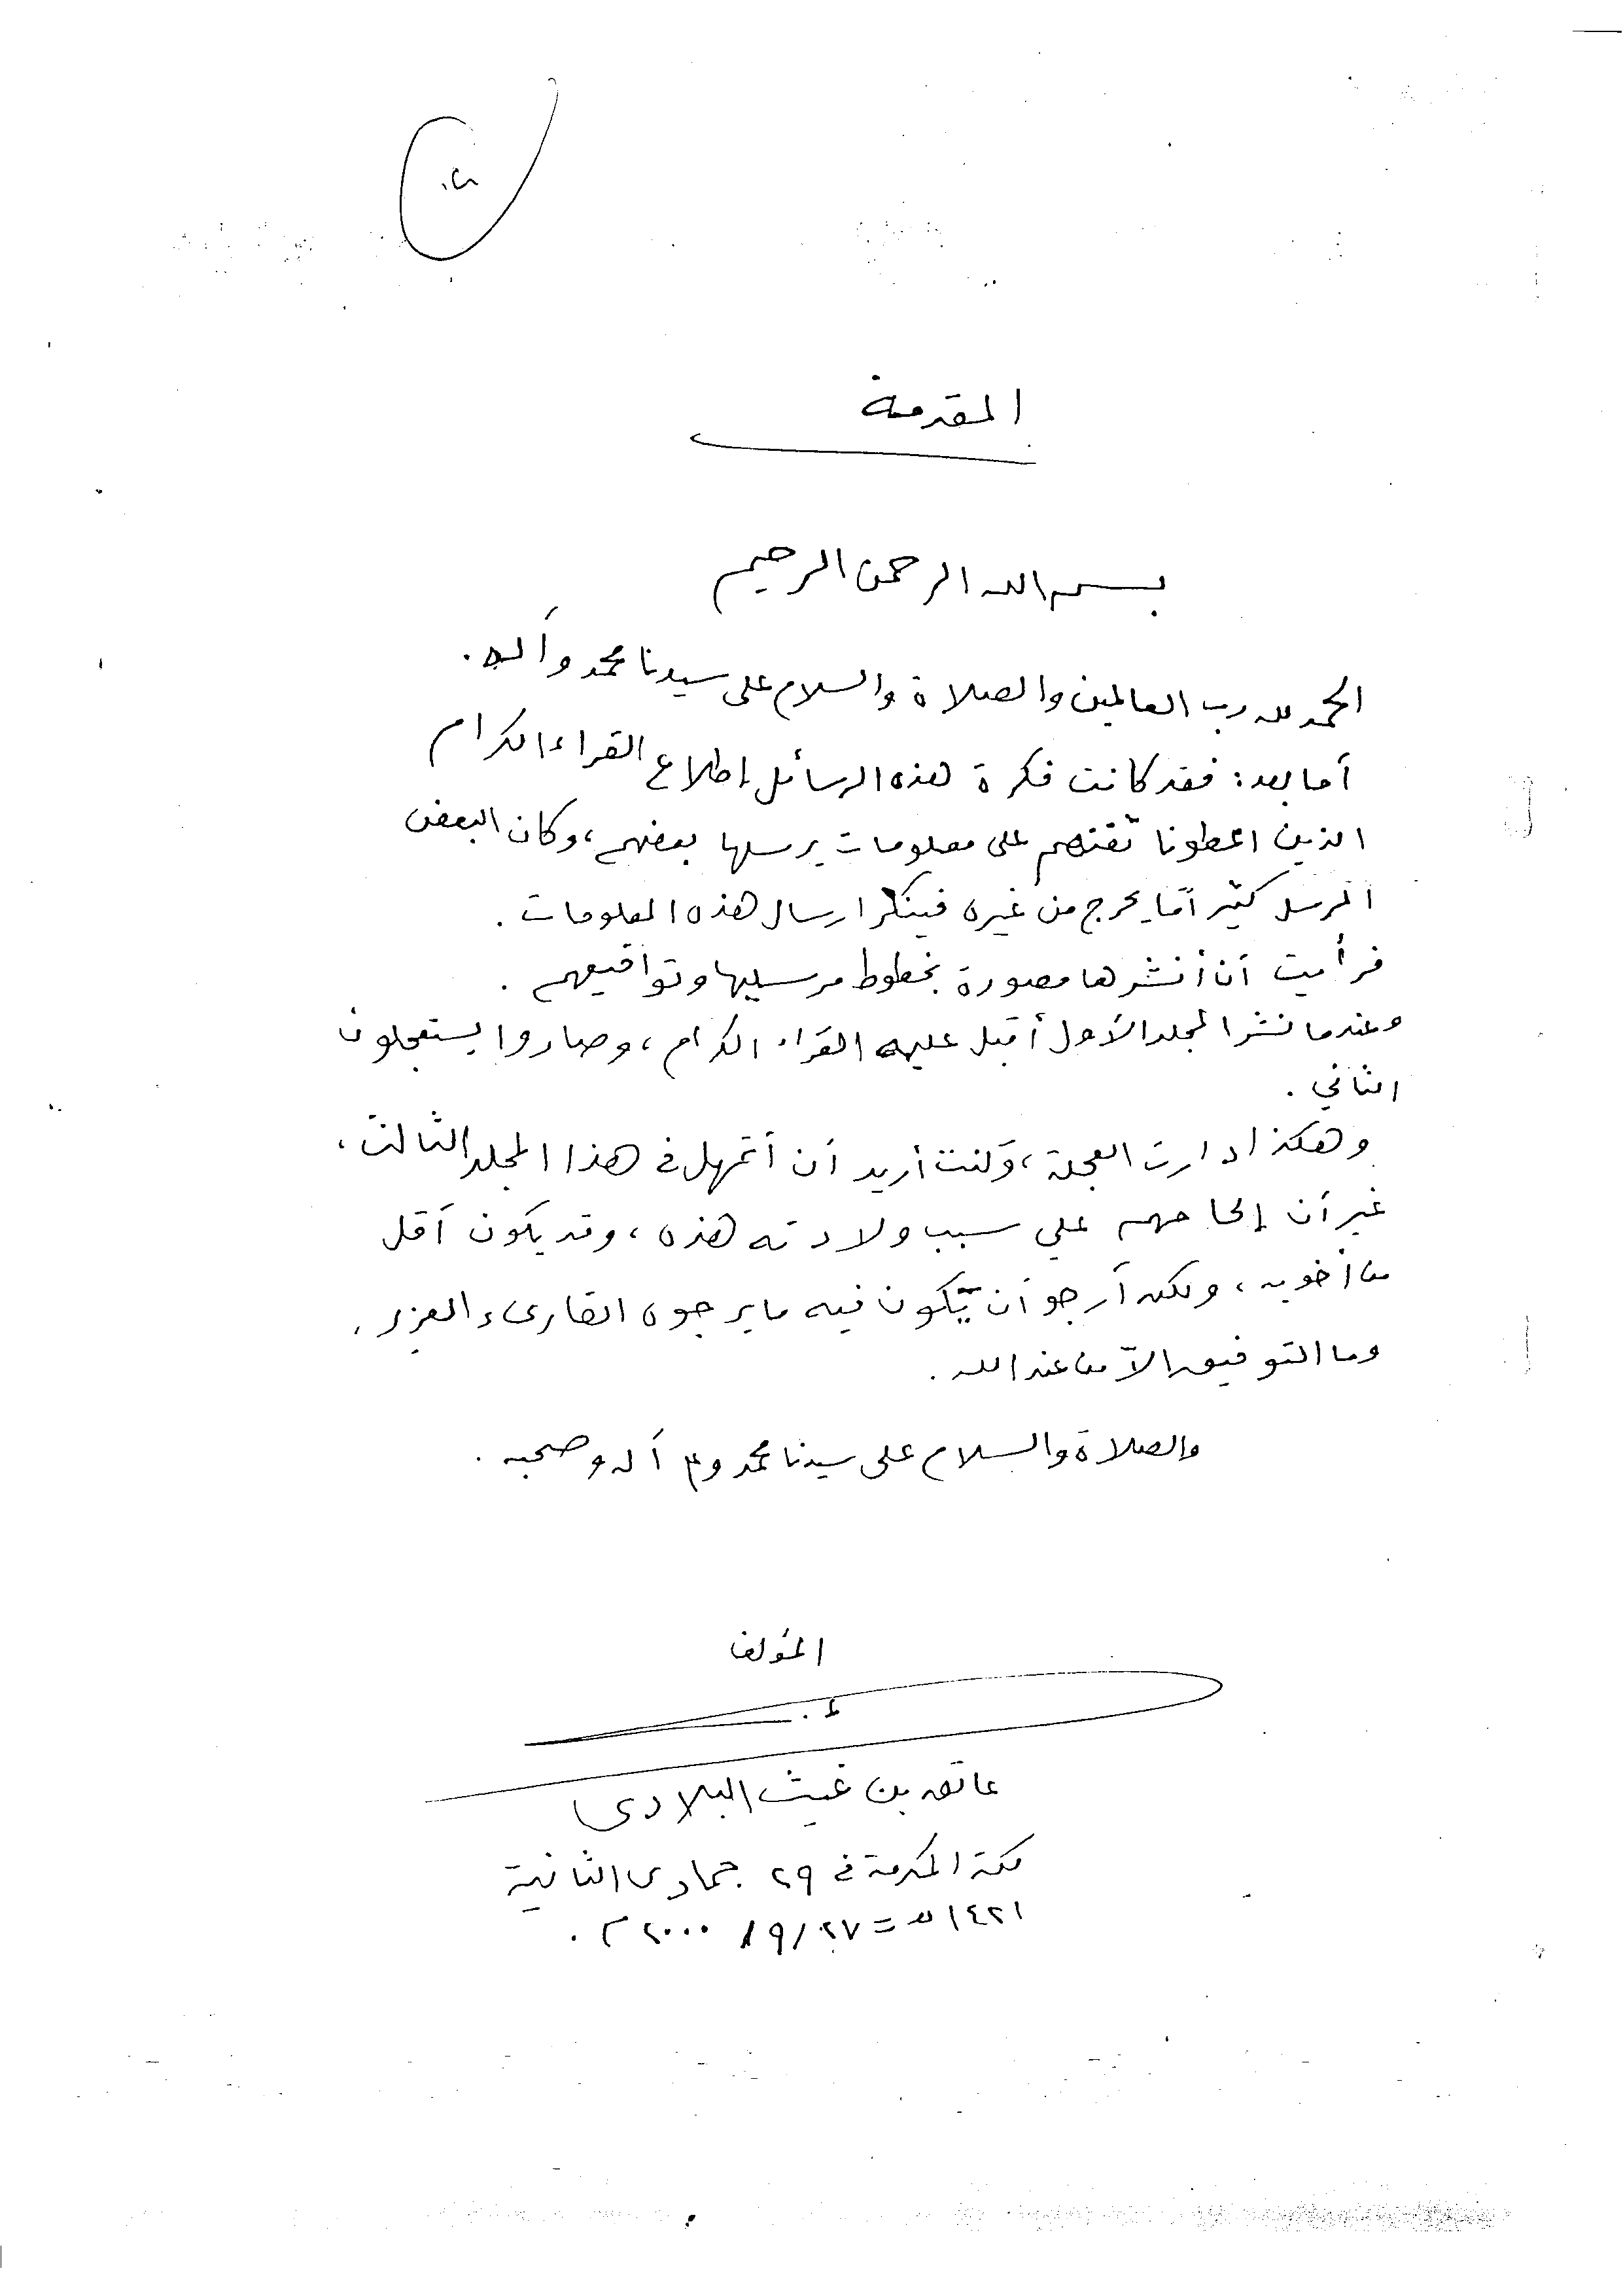 المقدمة
بسم الله الرحمن الرحيم
الحمد لله رب العالمين والصلاة والسلام على سيدنا محمد وآله.
أما بعد: فقد كانت فكرة هذه الرسائل إطلاع القراء الكرام
الذين اعطونا ثقتهم على معلومات يرسلها بعضهم، وكان البعض
المرسل كثيراً ما يحرج من غيره فينكر ارسال هذه المعلومات.
فرأيت أن أنشرها مصورة بخطوط مرسليها وتواقيعهم.
وعندما نشر المجلد الأول أقبل عليه القراء الكرام، وصاروا يستعجلون
الثاني.
وهكذا دارت العجلة، وكنت أريد أن أتمهل في هذا المجلد الثالث،
غير أن إلحاحهم علي سبب ولادته هذه، وقد يكون أقل
من أخويه، ولكن أرجو أن يكون فيه ما يرجوه القارىء العزيز.
وما التوفيق الاّ من عند الله.
والصلاة والسلام على سيدنا محمد وعلى آله وصحبه.
المؤلف
عاتق بن غيث البلادي
مكة المكرمة في ٢٩ جمادى الثانية
١٤٢١هـ = ٢٧/٩/٢٠٠٠م.